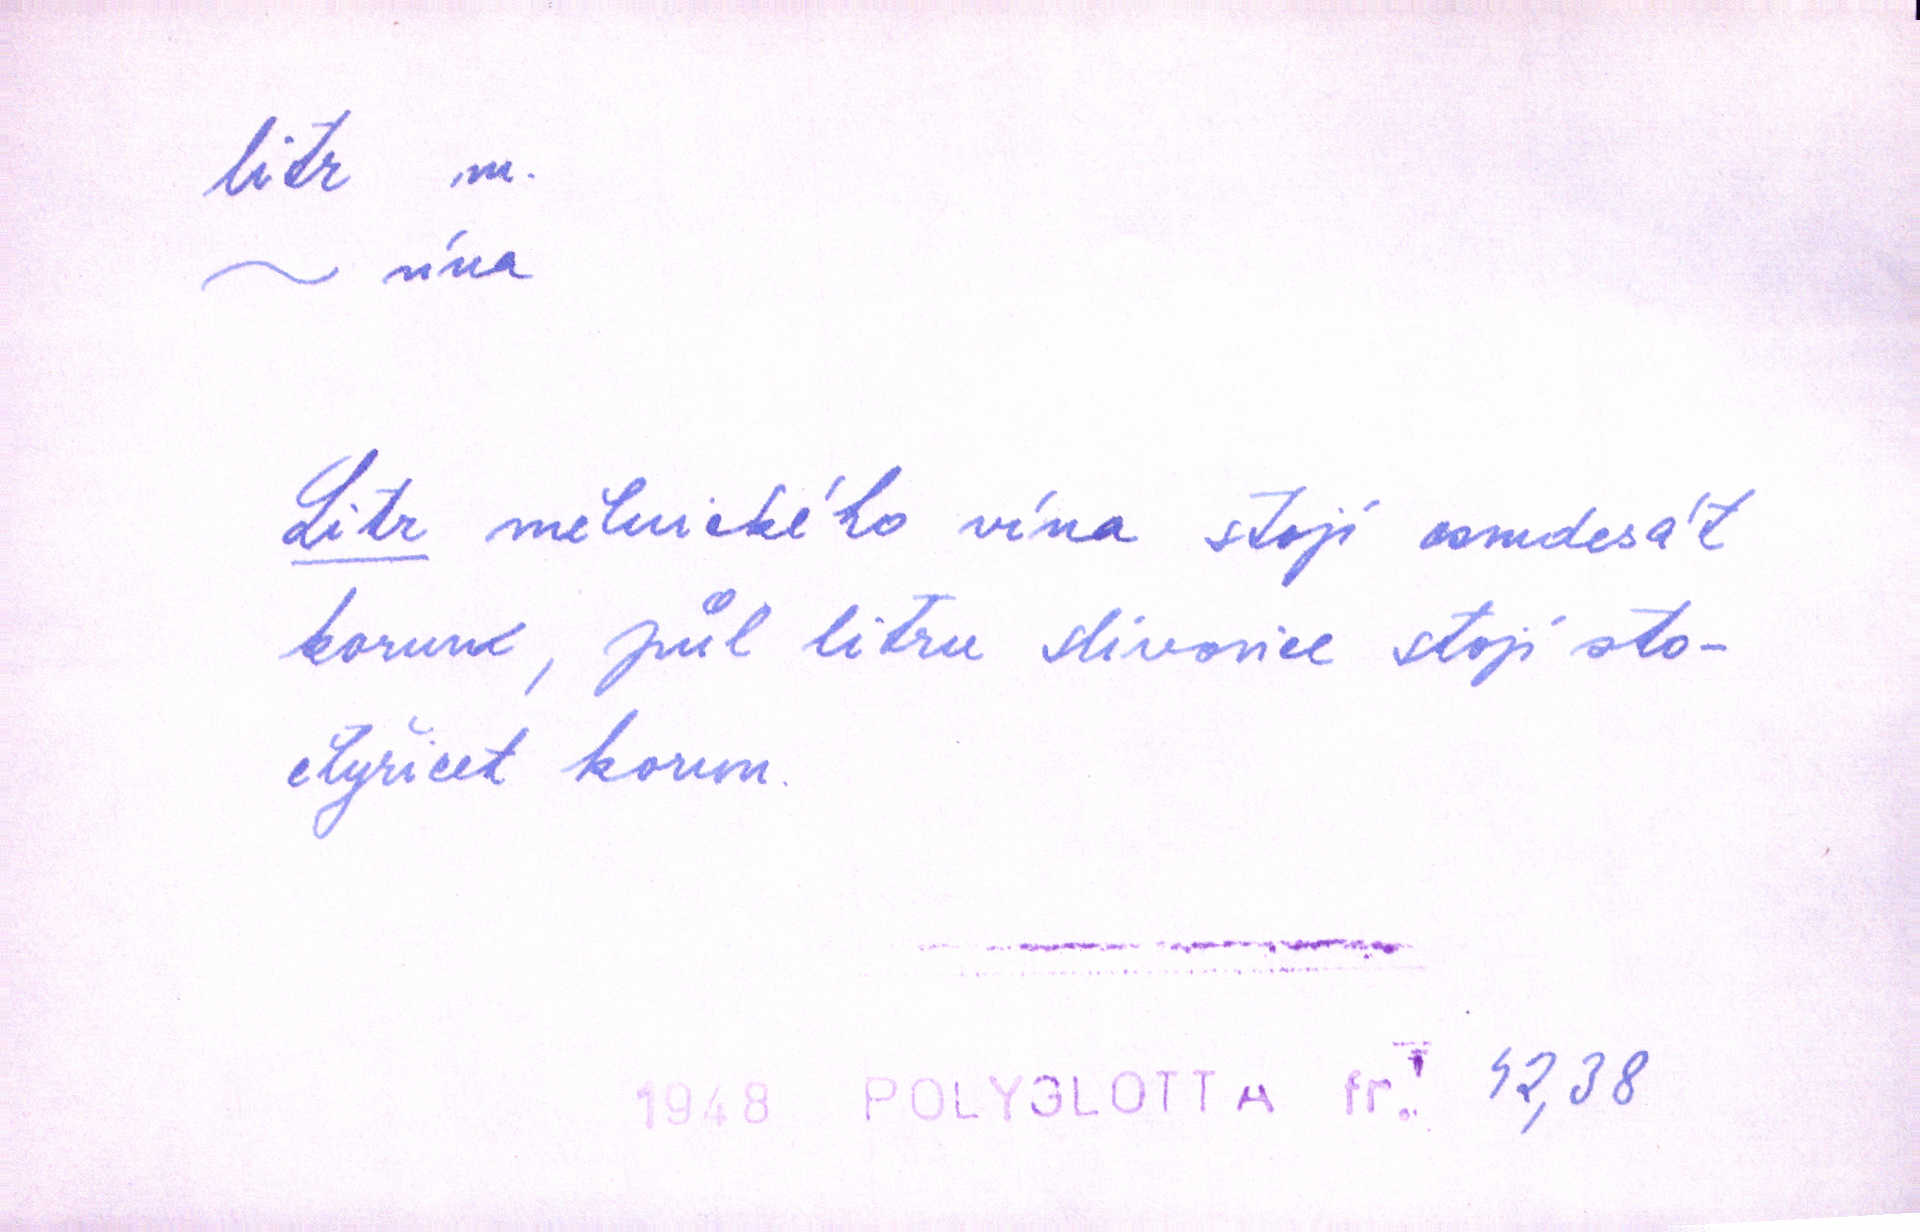 litr m.
~ vína
Litr mělnického vína stojí osmdesát
korun, půl litru slivovice stojí sto-
čtyřicet korun.
1948 POLYGLOTTA fr. 42,38